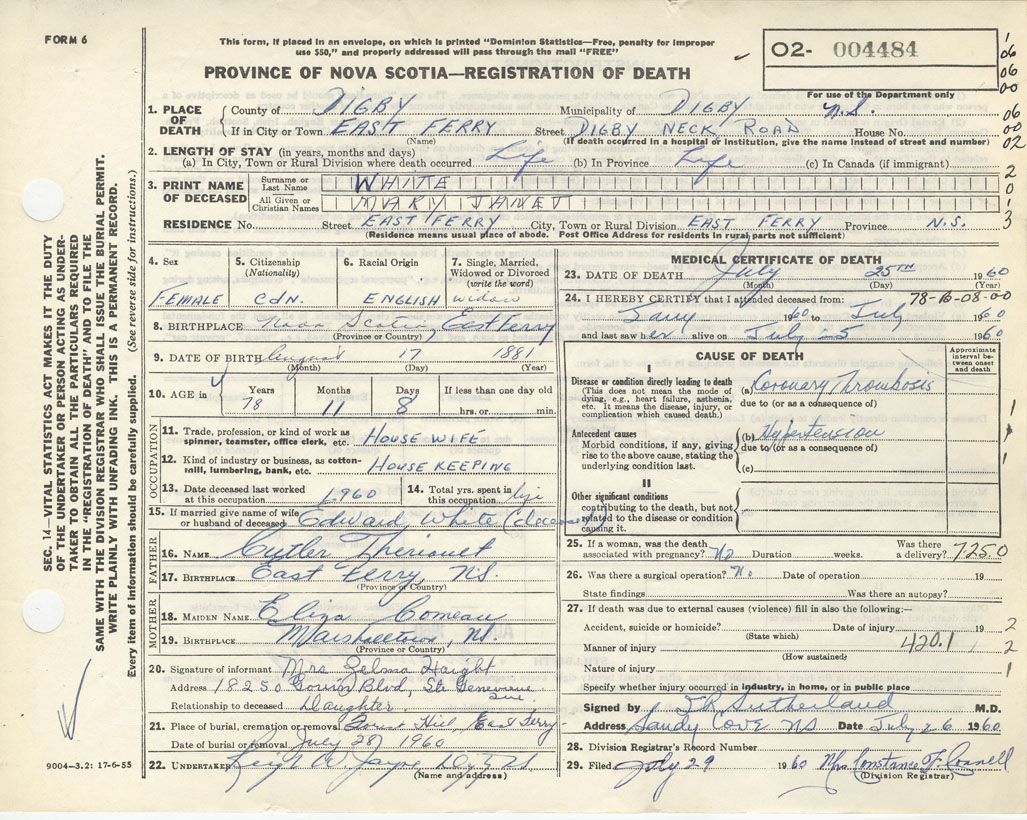 FORM 6
This form, if placed in an envelope, on which is printed "Dominion Statistics—Free, penalty for improper
use $50," and properly addressed will pass through the mail "FREE"
PROVINCE OF NOVA SCOTIA—REGISTRATION OF DEATH
02- 004484
For use of the Department only
1. PLACE OF DEATH { County of DIGBY Municipality of DIGBY N.S.
If in City or Town EAST FERRY Street DIGBY NECK ROAD House No.
(Name) (If death occurred in a hospital or institution, give the name instead of street and number)
2. LENGTH OF STAY (in years, months and days)
(a) In City, Town or Rural Division where death occurred Life (b) In Province Life (c) In Canada (if immigrant)
3. PRINT NAME OF DECEASED { Surname or Last Name WHITE
All Given or Christian Names MARY JANET
RESIDENCE No. Street EAST FERRY City, Town or Rural Division EAST FERRY Province N.S.
(Residence means usual place of abode. Post Office Address for residents in rural parts not sufficient)
4. Sex FEMALE
5. Citizenship (Nationality) CDN.
6. Racial Origin ENGLISH
7. Single, Married, Widowed or Divorced (write the word) widow
8. BIRTHPLACE Nova Scotia, East Ferry
(Province or Country)
9. DATE OF BIRTH August 17 1881
(Month) (Day) (Year)
10. AGE in { Years 78 Months 11 Days 8 If less than one day old hrs. or min.
OCCUPATION
11. Trade, profession, or kind of work as spinner, teamster, office clerk, etc. HOUSE WIFE
12. Kind of industry or business, as cotton-mill, lumbering, bank, etc. HOUSE KEEPING
13. Date deceased last worked at this occupation 1960
14. Total yrs. spent in this occupation life
15. If married give name of wife or husband of deceased Edward White (deceased)
FATHER
16. NAME Cutler Theriault
17. BIRTHPLACE East Ferry, N.S.
(Province or Country)
MOTHER
18. MAIDEN NAME Eliza Comeau
19. BIRTHPLACE Marshalltown, N.S.
(Province or Country)
20. Signature of informant Mrs Zelma Haight
Address 18250 Gouin Blvd, Ste Genevieve
Relationship to deceased Daughter
21. Place of burial, cremation or removal Hill, East Ferry
Date of burial or removal July 28, 1960
22. UNDERTAKER W. Jayne, Digby NS
(Name and address)
MEDICAL CERTIFICATE OF DEATH
23. DATE OF DEATH July 25TH 1960
(Month) (Day) (Year)
24. I HEREBY CERTIFY that I attended deceased from: 78-16-08-00
Jany 1960 to July 1960
and last saw her alive on July 25 1960
CAUSE OF DEATH
Approximate interval between onset and death
I
Disease or condition directly leading to death
(This does not mean the mode of dying, e.g., heart failure, asthenia, etc. It means the disease, injury, or complication which caused death.)
(a) Coronary Thrombosis
due to (or as a consequence of)
Antecedent causes
Morbid conditions, if any, giving rise to the above cause, stating the underlying condition last.
(b) Hypertension
due to (or as a consequence of)
(c)
II
Other significant conditions
contributing to the death, but not related to the disease or condition causing it.
25. If a woman, was the death associated with pregnancy? No Duration weeks. Was there a delivery? 7250
26. Was there a surgical operation? No Date of operation 19
State findings Was there an autopsy?
27. If death was due to external causes (violence) fill in also the following:—
Accident, suicide or homicide? Date of injury 19
(State which)
Manner of injury 420.1
(How sustained)
Nature of injury
Specify whether injury occurred in industry, in home, or in public place
Signed by Sutherland M.D.
Address Sandy Cove NS Date July 26 1960
28. Division Registrar's Record Number
29. Filed July 29 1960 Mrs Constance F. Connell
(Division Registrar)
SEC. 14—VITAL STATISTICS ACT MAKES IT THE DUTY
OF THE UNDERTAKER OR PERSON ACTING AS UNDER-
TAKER TO OBTAIN ALL THE PARTICULARS REQUIRED
IN THE "REGISTRATION OF DEATH" AND TO FILE THE
SAME WITH THE DIVISION REGISTRAR WHO SHALL ISSUE THE BURIAL PERMIT.
WRITE PLAINLY WITH UNFADING INK. THIS IS A PERMANENT RECORD.
Every item of information should be carefully supplied. (See reverse side for instructions.)
9004-3.2: 17-6-55
1
06
06
00
06
00
02
2
0
1
3
1
1
1
2
2
1